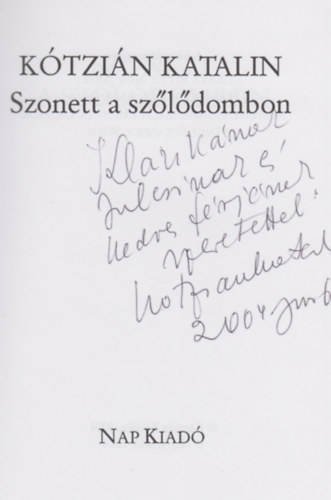 KÓTZIÁN KATALIN
Szonett a szőlődombon
Klárikának
Julcsinak és
kedves férjének
szeretettel
Kótziánkatalin
2004 jun 6
NAP KIADÓ